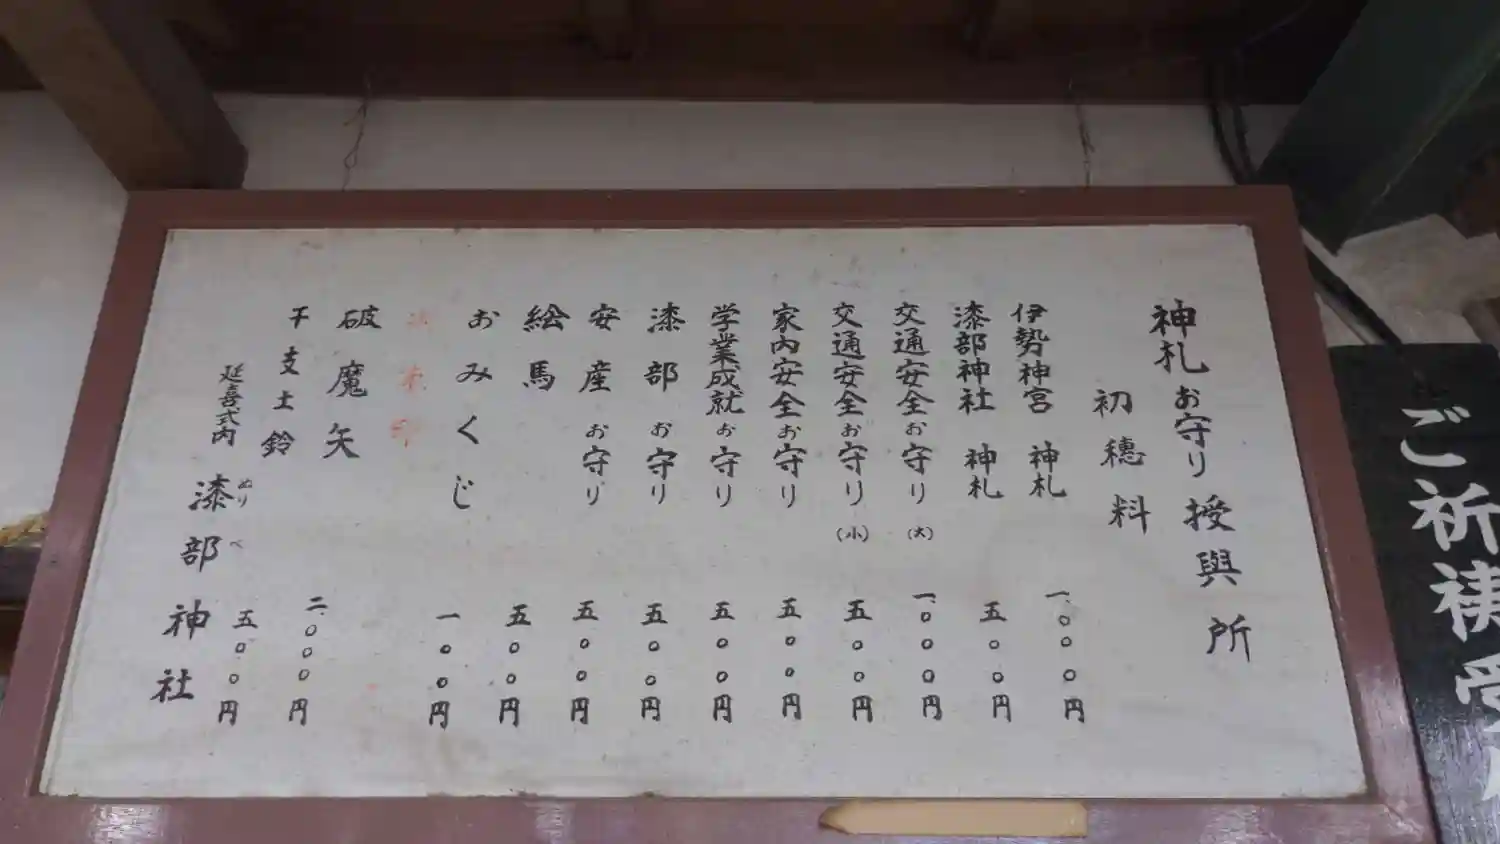 神札お守り授與所
初穂料
伊勢神宮 神札 一、〇〇〇円
漆部神社 神札 五〇〇円
交通安全お守り(大) 一、〇〇〇円
交通安全お守り(小) 五〇〇円
家内安全お守り 五〇〇円
学業成就お守り 五〇〇円
漆部お守り 五〇〇円
安産お守り 五〇〇円
絵馬 五〇〇円
おみくじ 一〇〇円
破魔矢 二、〇〇〇円
干支土鈴 五〇〇円
延喜式内 漆部神社
ぬりべ
ご祈祷受